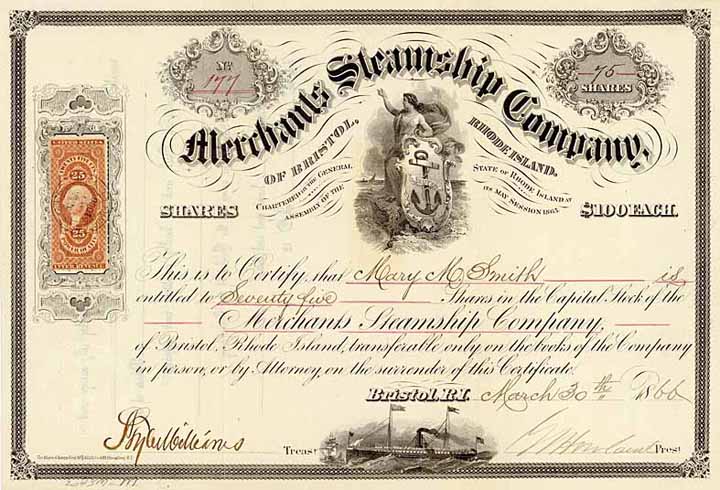 Nº
177
75
SHARES
Merchants Steamship Company,
OF BRISTOL, RHODE ISLAND.
CHARTERED BY THE GENERAL STATE OF RHODE ISLAND AT
ASSEMBLY OF THE ITS MAY SESSION 1865.
SHARES $100 EACH.
25 25
This is to Certify, that Mary M. Smith is
entitled to Seventy five Shares in the Capital Stock of the
Merchants Steamship Company,
of Bristol, Rhode Island, transferable only on the books of the Company
in person, or by Attorney, on the surrender of this Certificate.
Bristol, R.I. March 30th 1866
Treasr Prest